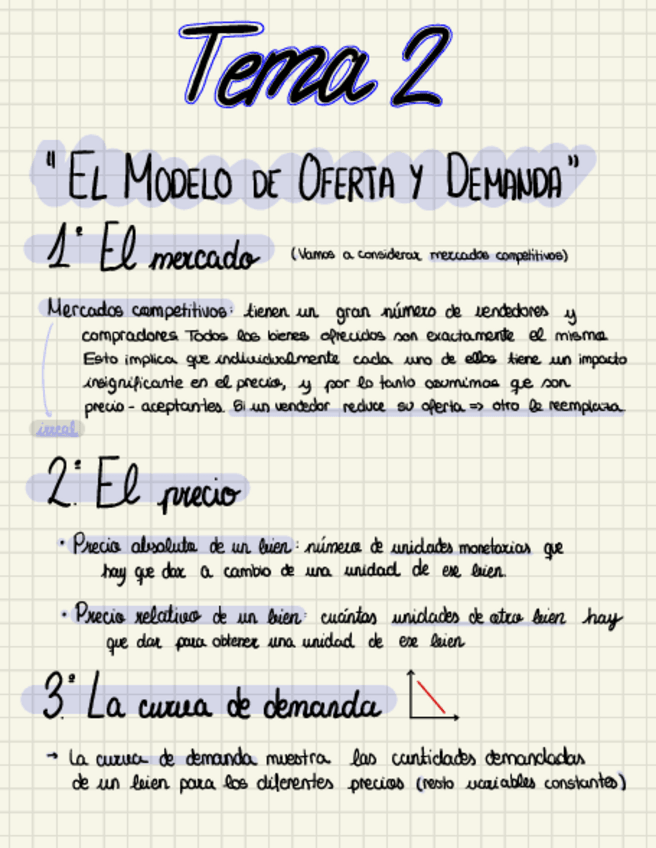 Tema 2
"EL MODELO DE OFERTA Y DEMANDA"
1º El mercado (Vamos a considerar mercados competitivos)
Mercados competitivos: tienen un gran número de vendedores y
compradores. Todos los bienes ofrecidos son exactamente el mismo.
Esto implica que individualmente cada uno de ellos tiene un impacto
insignificante en el precio, y por lo tanto asumimos que son
precio-aceptantes. Si un vendedor reduce su oferta => otro le reemplaza.
irreal
2º. El precio
· Precio absoluto de un bien: número de unidades monetarias que
hay que dar a cambio de una unidad de ese bien.
· Precio relativo de un bien: cuántas unidades de otro bien hay
que dar para obtener una unidad de ese bien
3º. La curva de demanda
→ La curva de demanda muestra las cantidades demandadas
de un bien para los diferentes precios (resto variables constantes)